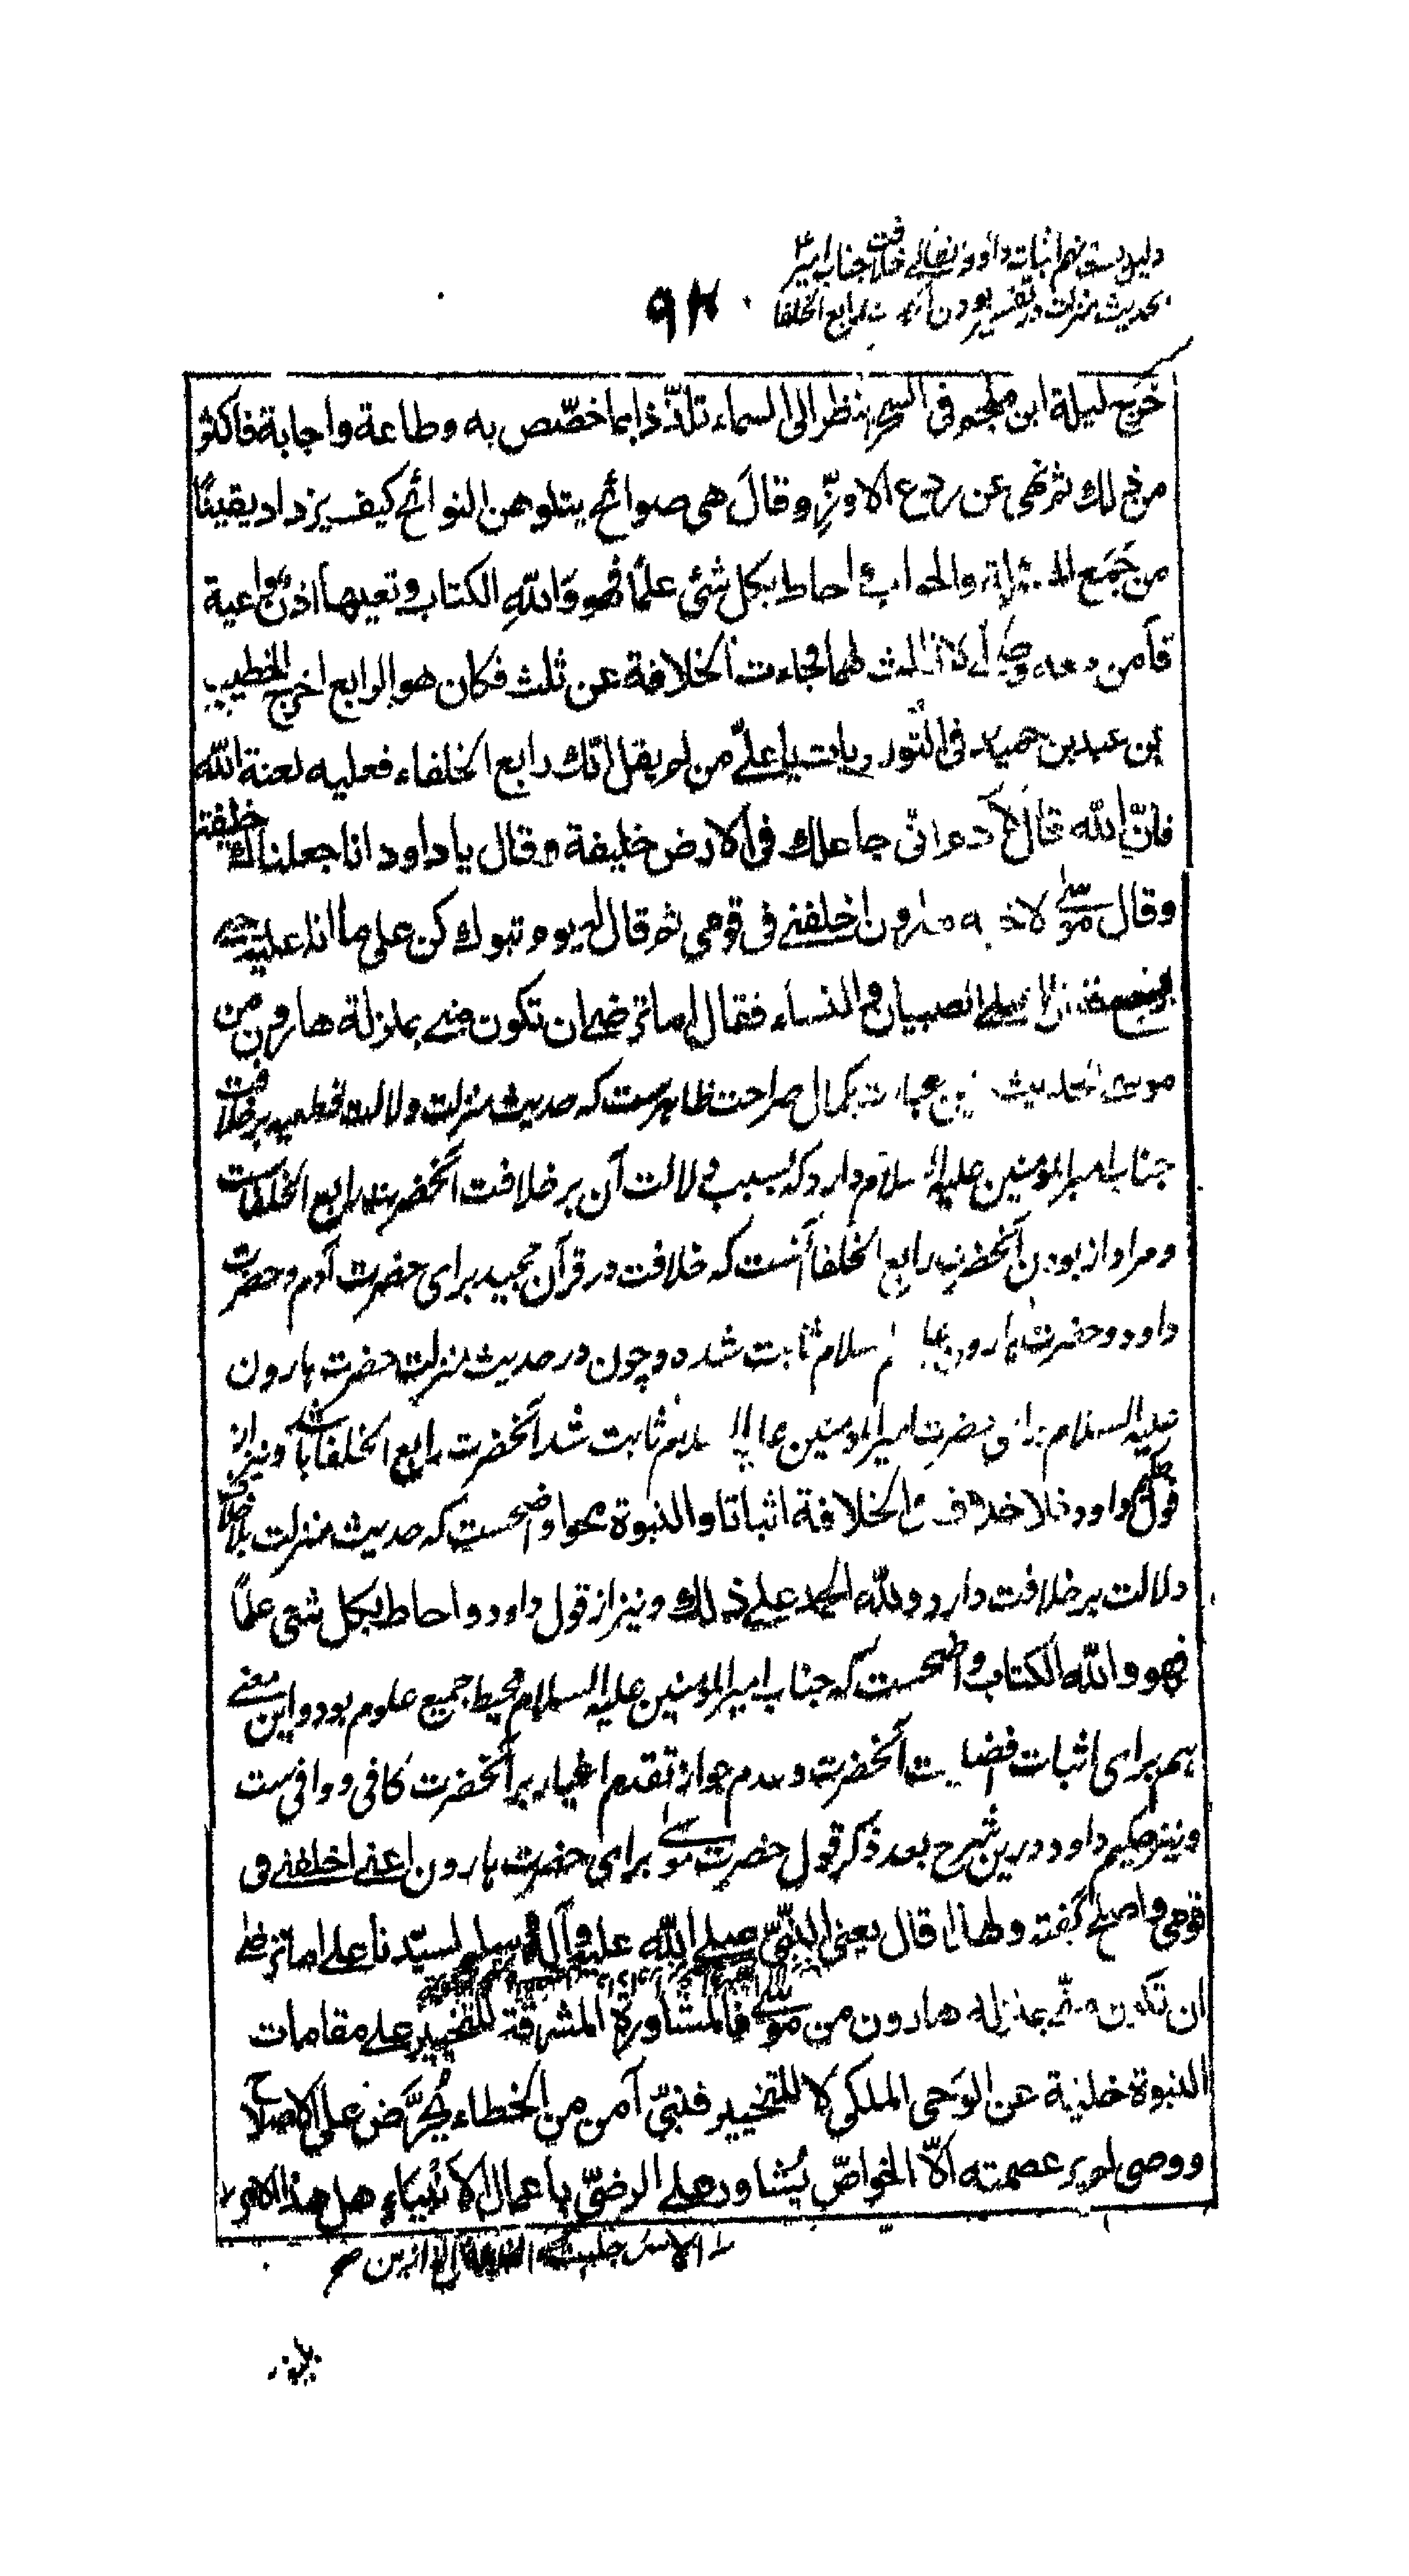 دلیل بست نهم اثبات داود نظامی خلافت جناب امیرؑ
بحدیث منزلت در تفسیر بودن آنحضرت رابع الخلفا
خرج ليلة ابن ملجم فى السحر ينظر الى السماء تلذّذا بما خصّص به وطاعة واجابة فاكثر
من ذلك ثم نهى عن ردع الاوزّ وقال هى صوائح يتلوهن النوائح كيف يزداد يقينًا
من جَمَع واحاط بكل شئ علمًا فهو وَاللهِ الكتاب وتعيها اذن واعية
فآمن معه لهما فجاءت الخلافة عن ثلث فكان هو الرابع اخرج الخطيب
بن عبد بن حميد فى يا علىّ من لم يقل انّك رابع الخلفاء فعليه لعنة الله
فانّ الله قال لآدم انى جاعلك فى الارض خليفة وقال يا داود انا جعلناك خليفة
وقال موسى لاخيه هارون اخلفنى فى قومى ثم قال له يوم تبوك كن على ما انا عليه حتى
ارجع الصبيان والنساء فقال اما ترضى ان تكون منى بمنزلة هارون من
موسى الحديث ازین عبارت بکمال صراحت ظاهرست که حدیث منزلت دلالت قطعیه بر خلافت
جناب امیر المؤمنین علیه السلام دارد که بسبب دلالت آن بر خلافت آنحضرت رابع الخلفاست
و مراد از بودن آنحضرت رابع الخلفا آنست که خلافت در قرآن مجید برای حضرت آدم و حضرت
داود و حضرت هارون علیهم السلام ثابت شده و چون در حدیث منزلت حضرت هارون
علیه السلام برای حضرت امیر المؤمنین علیه السلام ثابت شد آنحضرت رابع الخلفا باشد و نیز از
قول حکیم داود فلا خلاف فى الخلافة اثباتا والنبوة محوا واضحست که حدیث منزلت بلا خلاف
دلالت بر خلافت دارد ولله الحمد على ذلك و نیز از قول داود واحاط بكل شئ علمًا
فهو والله الكتاب واضحست که جناب امیر المؤمنین علیه السلام محیط جمیع علوم بود و این معنی
هم برای اثبات فضلیت آنحضرت و عدم جواز تقدم اغیار بر آنحضرت کافی و وافی ست
و نیز حکیم داود درین شرح بعد ذکر قول حضرت موسی برای حضرت هارون اعنی اخلفنى فى
قومى واصلح گفته ولهذا قال يعنى النبىّ صلى الله عليه وآله وسلم لسيّدنا على اما ترضى
ان تكون منّى بمنزلة هارون من موسى فالمشاورة المشرقة للتخيير على مقامات
النبوة خلية عن الوَحى الملكى لا للتخيير فنبىّ آمن من الخطاء يُحَرَّض على الاصلاح
ووصى لم ير عصمته الّا الخواصّ يُشاور على الرضىّ باعمال الانبياء هل هذا الا هو